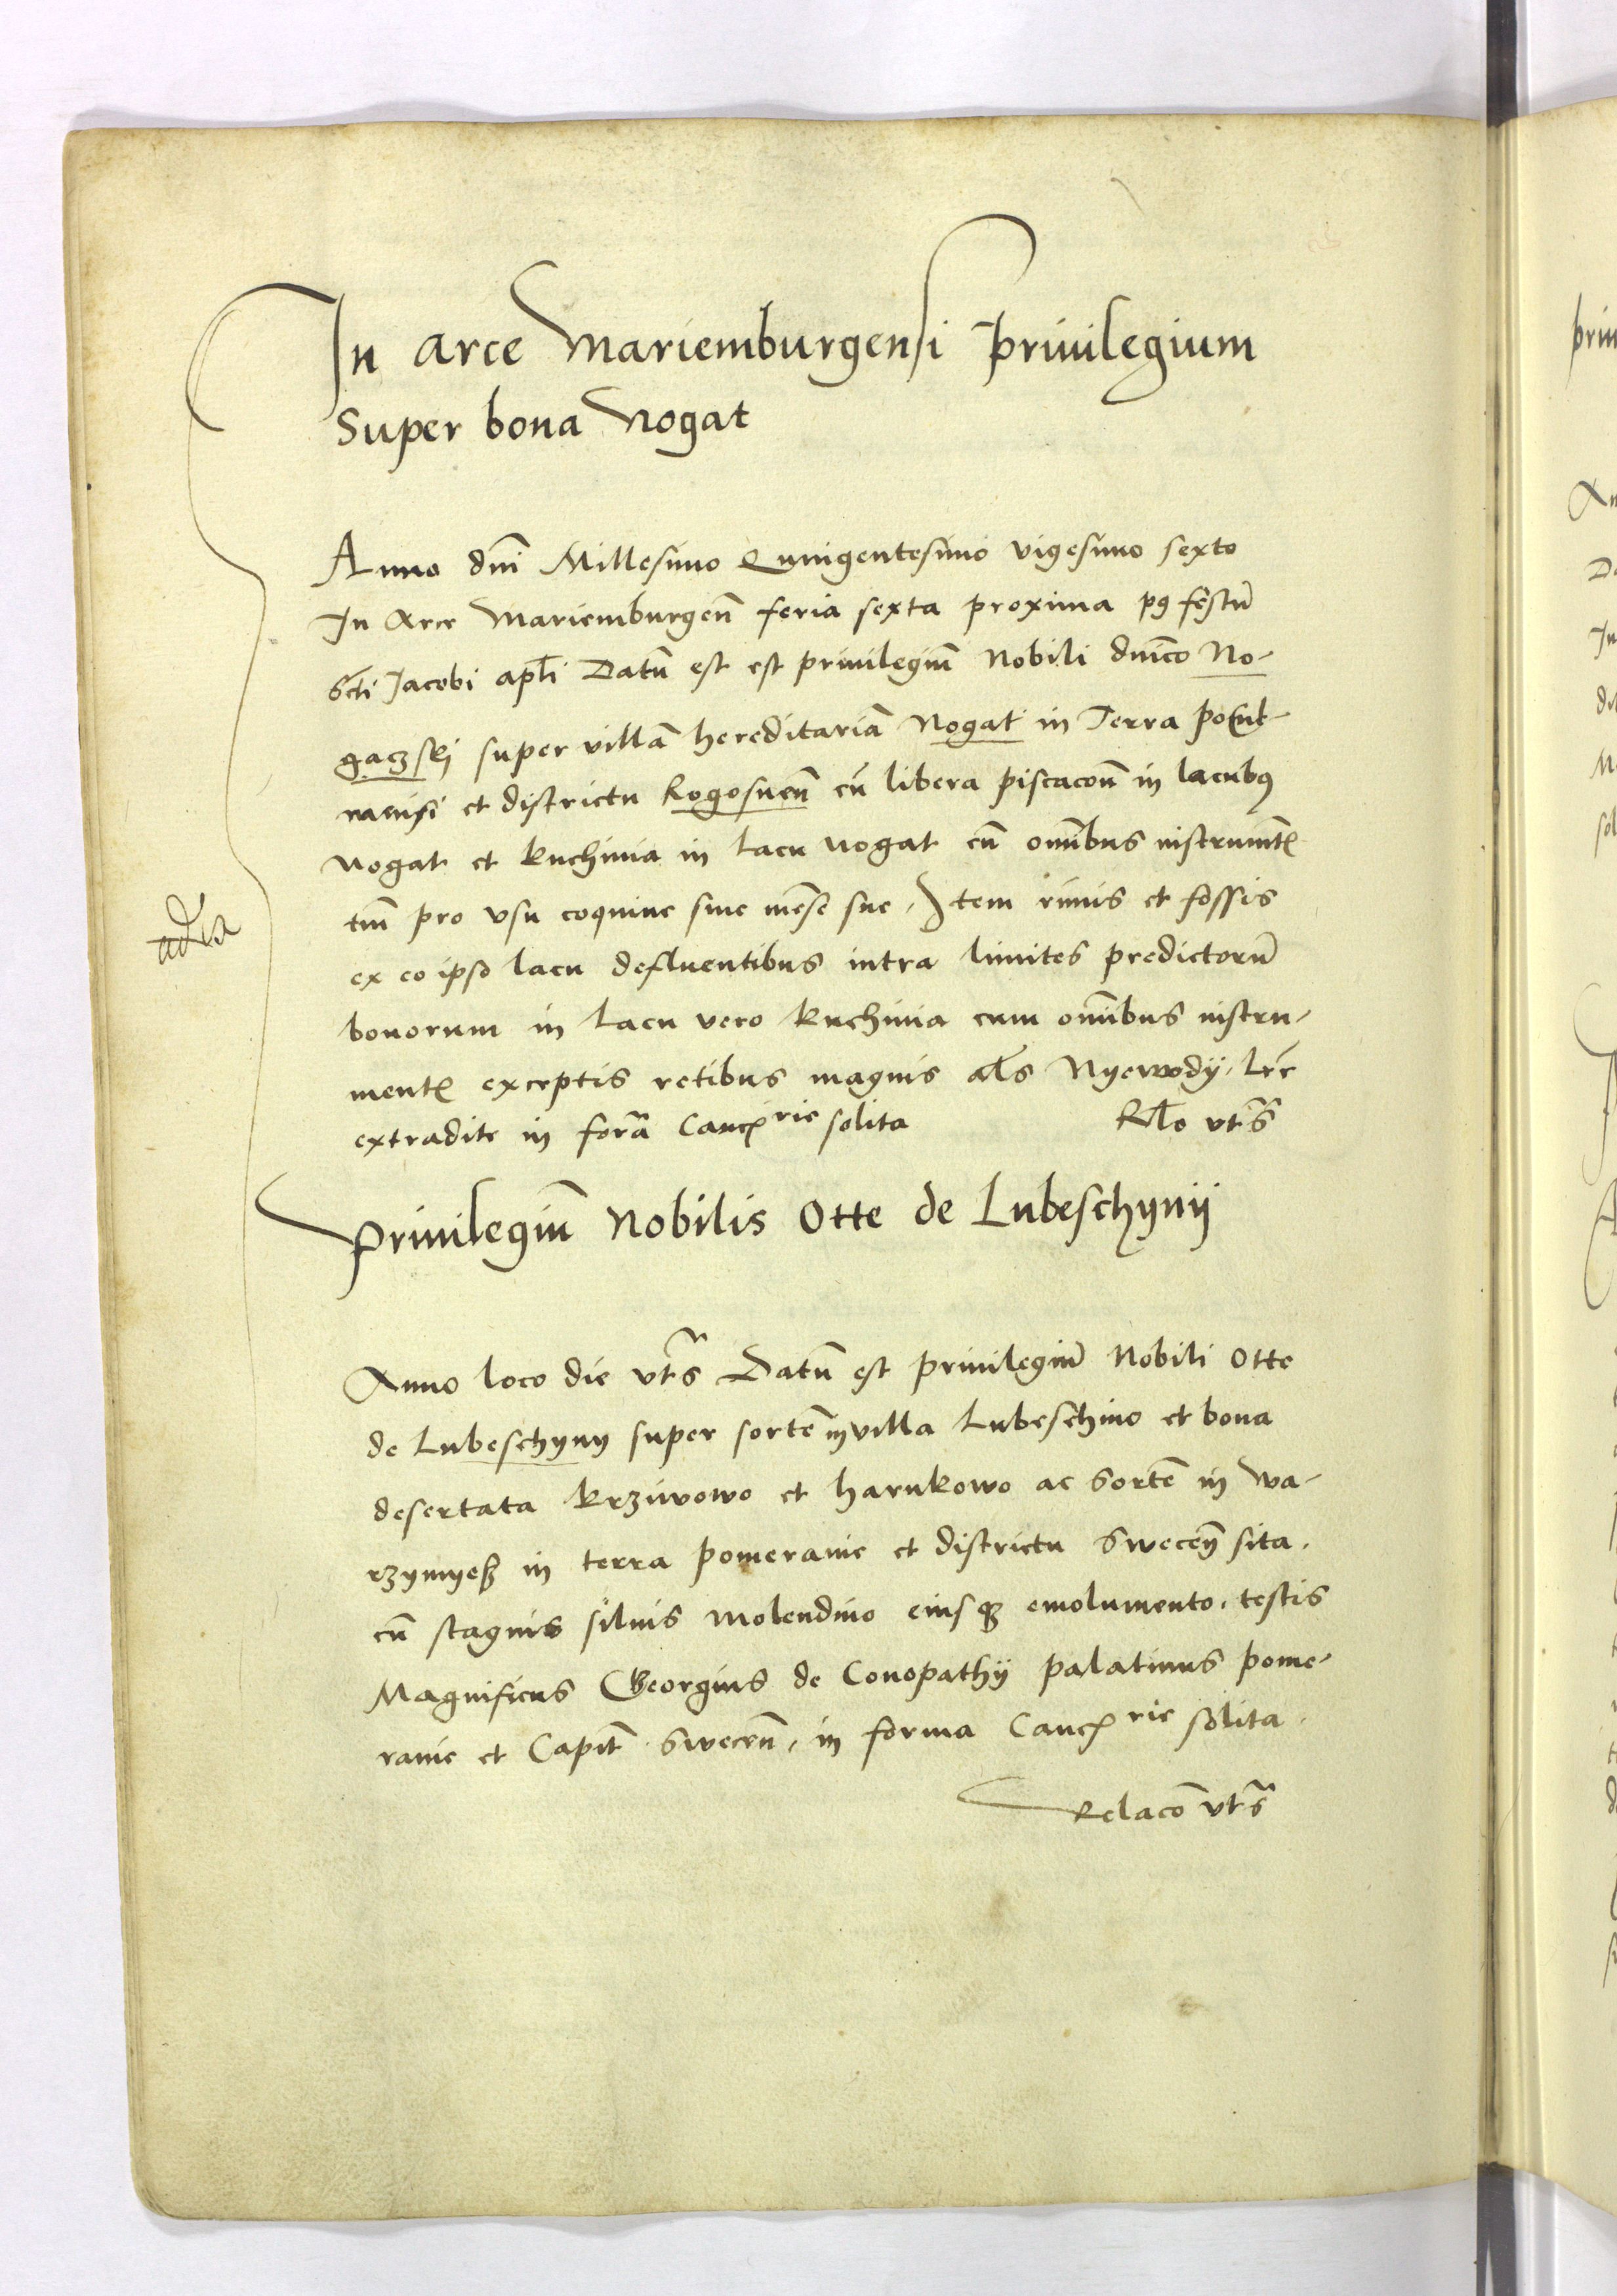 In arce Mariemburgensi Privilegium
Super bona Nogat
Anno dni Millesimo Quingentesimo vigesimo sexto
In Arce Mariemburgen feria sexta proxima p9 festu
scti Jacobi apli Datu est est privilegiu Nobili dnico No-
gaczskj super villa hereditaria Nogat in Terra
et districtu Rogosnen cu libera piscacon in lacubq
nogat et kuchinia in lacu nogat cu omibus instrument
tm pro usu coquine sive mese sue. Item rivis et fossis
ex eo ipso lacu defluentibus intra limites predictoru
bonorum in lacu vero kuchinia cum omibus instru-
ment exceptis retibus magnis als Nyewody. Lre
extradite in fora Cancrie solita Rlo vts
adea
Privilegiu Nobilis Otte de Lubeschynij
Anno loco die vts Datu est privilegiu Nobili Otte
de Lubeschyny super sorte in villa Lubeschino et bona
desertata krziwowo et harnkowo ac sorte in wa-
rzymyeß in terra pomeranie et districtu Swecen sita.
cu stagnis silvis molendino eiusq emolumento. testis
Magnificus Georgius de Conopathij palatinus pome-
ranie et Capit. Swecen, in forma Cancrie solita.
Relaco vts